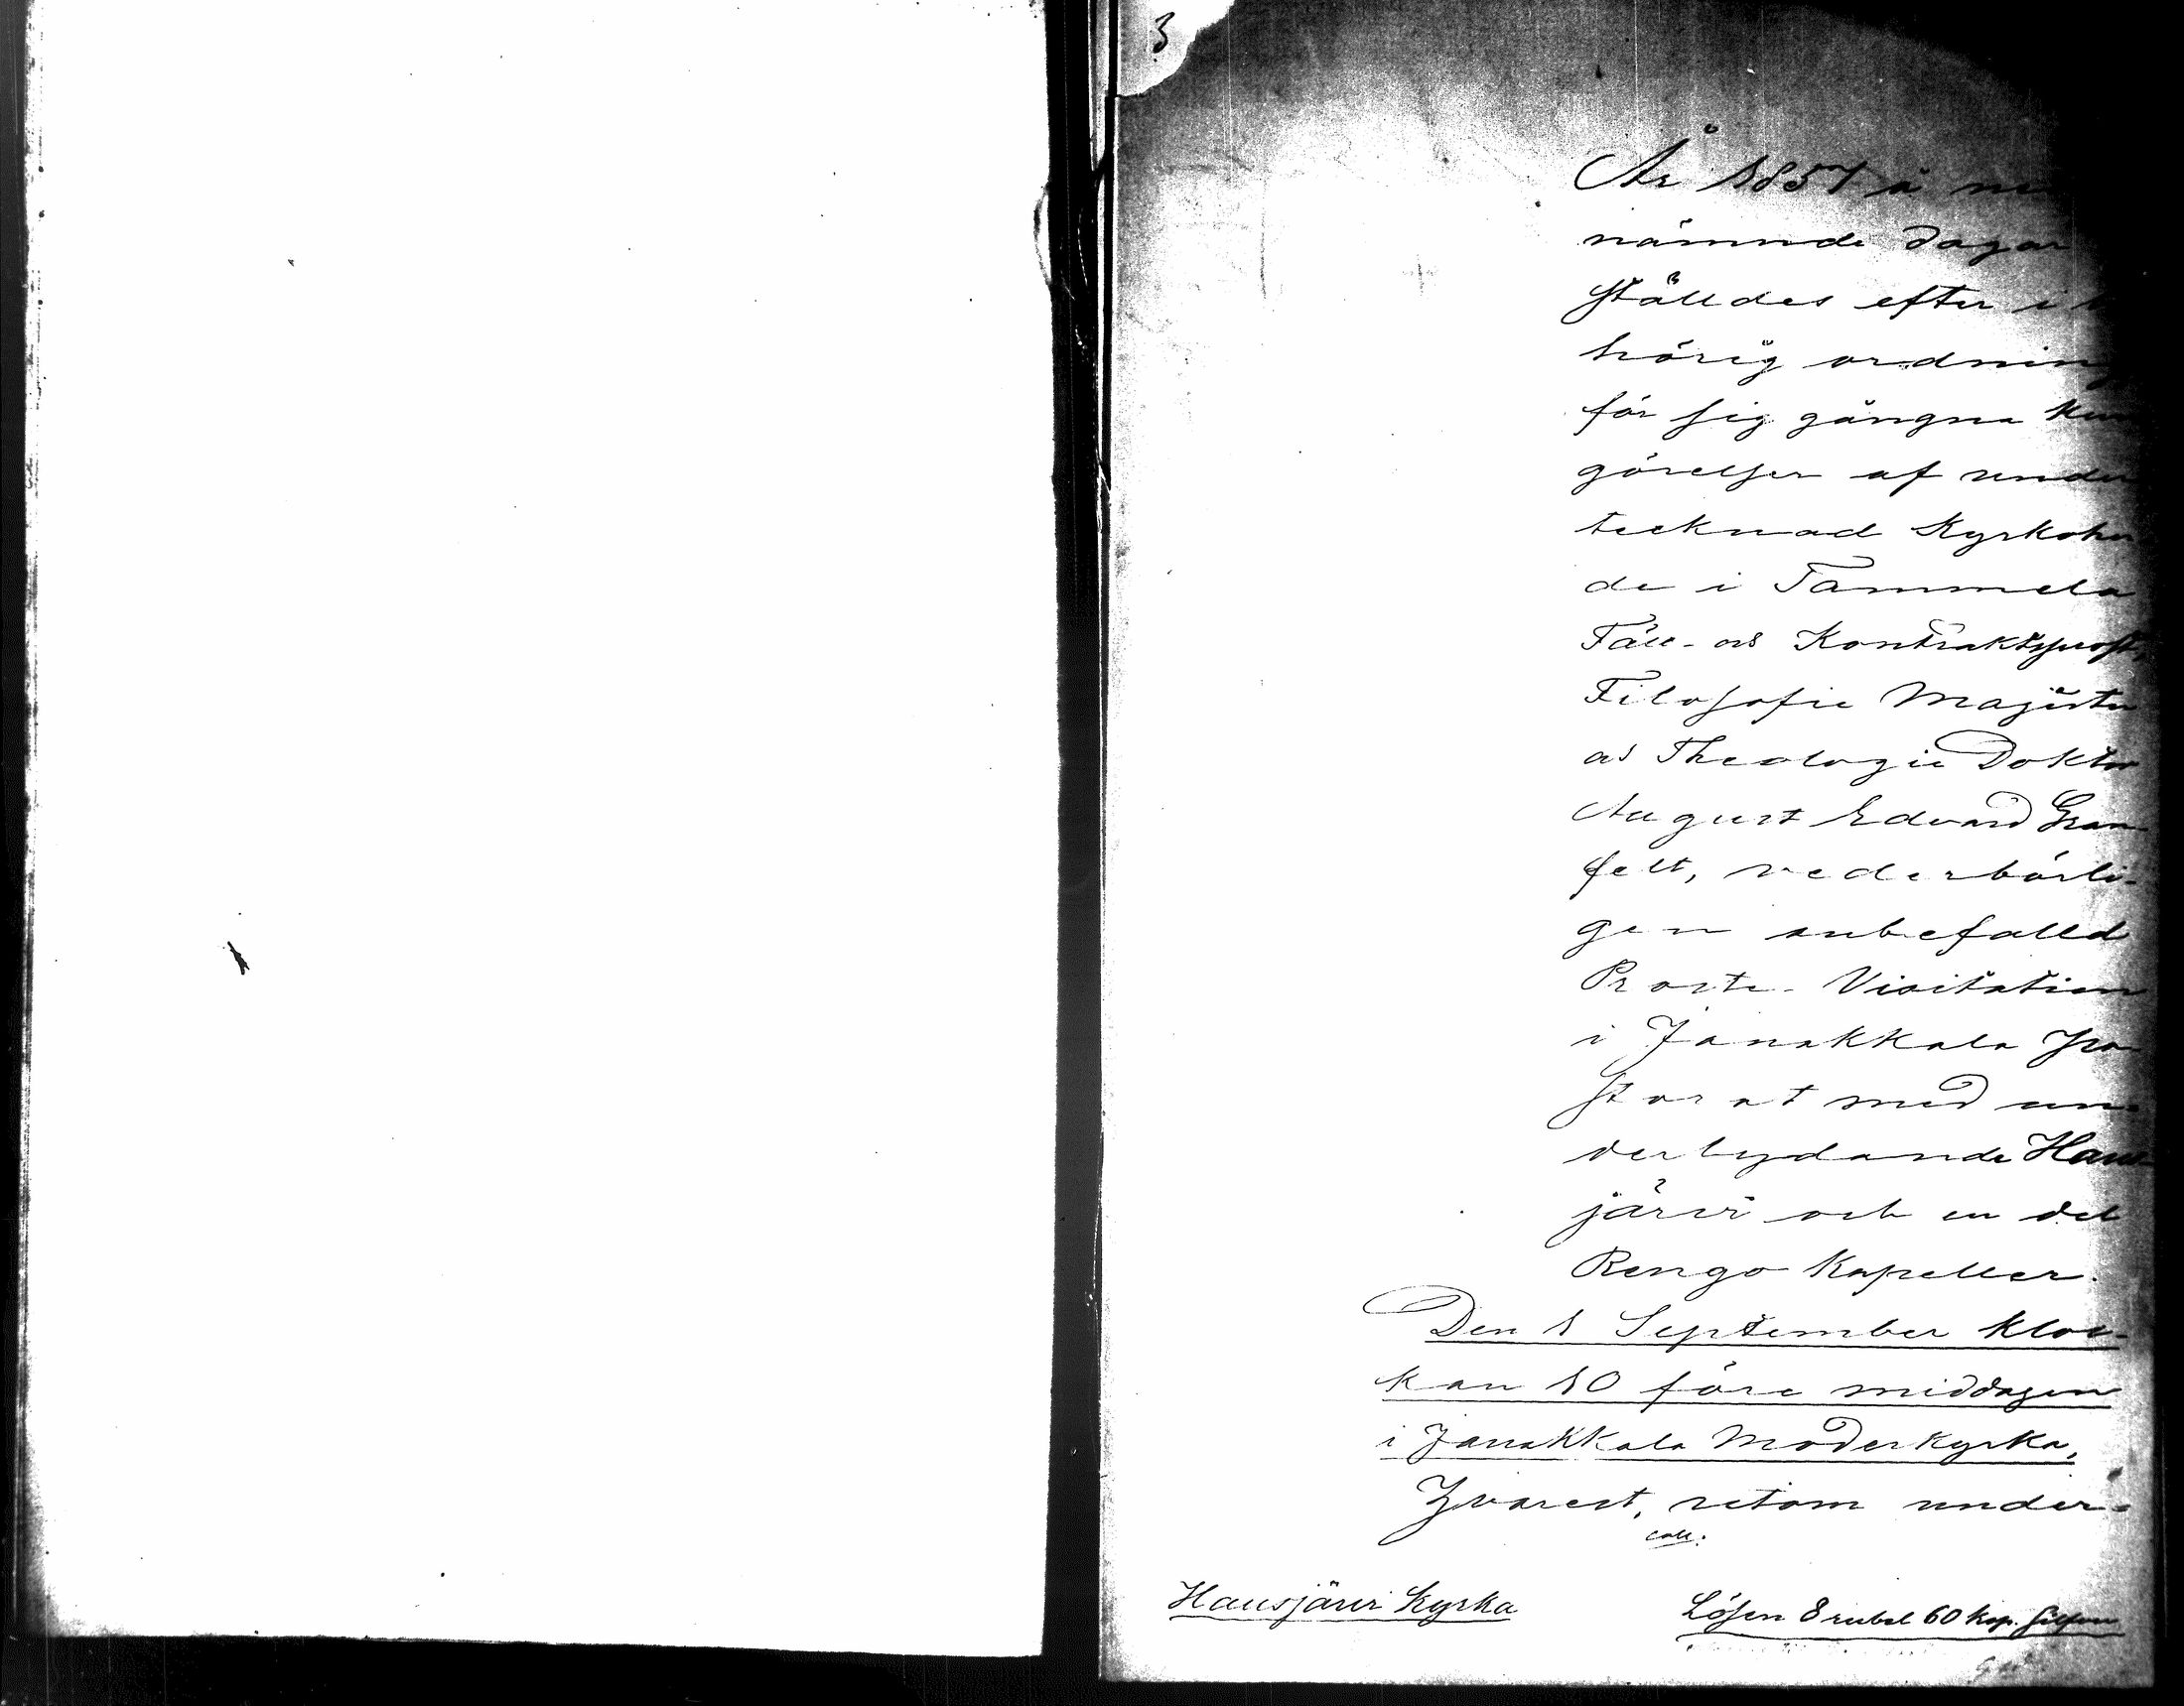 3
År 1857 å
nämnde dagar
ställdes efter i
hörig ordning
för sig gångna kun
görelser af under
tecknad Kyrkoher
de i Tammela
Titl. och Kontraktsprost,
Filosofie Magister
och Theologie Doktor
August Edvard Gran
felt, vederbörli-
gen anbefalld
Proste-Visitation
i Janakkala Pa
storat med un-
derlydande Haus
järvi och en del
Rengo Kapeller.
Den 1 September kloc-
kan 10 före middagen
i Janakkala Moderkyrka,
Hvarest, utom under-
coll:
Hausjärvi Kyrka
Lösen 8 rubel 60 kop. silfver